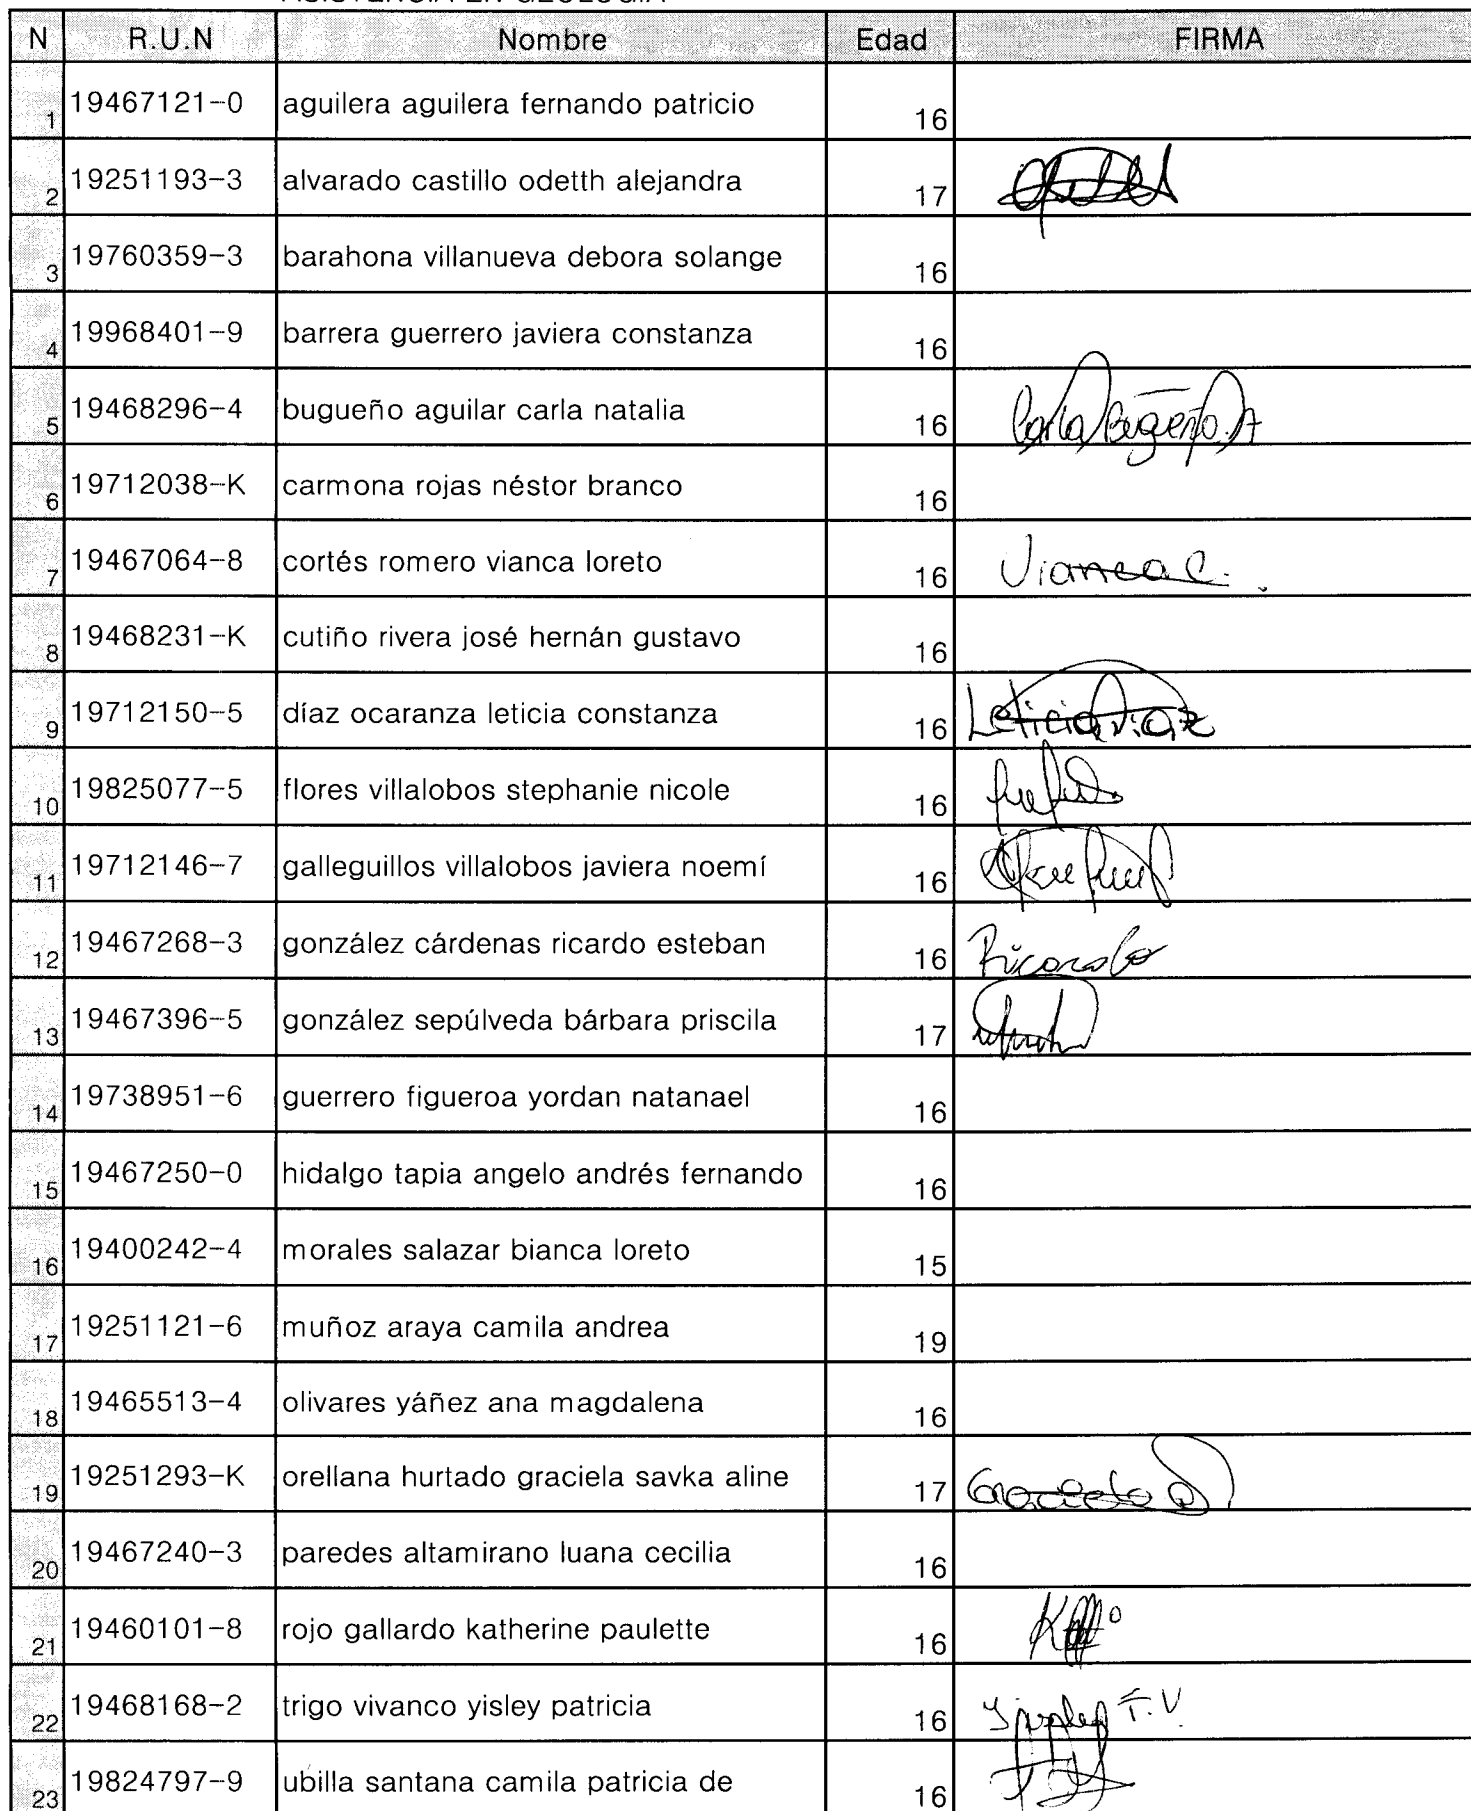 N R.U.N Nombre Edad FIRMA
1 19467121-0 aguilera aguilera fernando patricio 16
2 19251193-3 alvarado castillo odetth alejandra 17
3 19760359-3 barahona villanueva debora solange 16
4 19968401-9 barrera guerrero javiera constanza 16
5 19468296-4 bugueño aguilar carla natalia 16 Carla Bugeño. A
6 19712038-K carmona rojas néstor branco 16
7 19467064-8 cortés romero vianca loreto 16 Vianca C.
8 19468231-K cutiño rivera josé hernán gustavo 16
9 19712150-5 díaz ocaranza leticia constanza 16 Leticia Diaz
10 19825077-5 flores villalobos stephanie nicole 16
11 19712146-7 galleguillos villalobos javiera noemí 16
12 19467268-3 gonzález cárdenas ricardo esteban 16 Ricardo
13 19467396-5 gonzález sepúlveda bárbara priscila 17
14 19738951-6 guerrero figueroa yordan natanael 16
15 19467250-0 hidalgo tapia angelo andrés fernando 16
16 19400242-4 morales salazar bianca loreto 15
17 19251121-6 muñoz araya camila andrea 19
18 19465513-4 olivares yáñez ana magdalena 16
19 19251293-K orellana hurtado graciela savka aline 17 Graciela O
20 19467240-3 paredes altamirano luana cecilia 16
21 19460101-8 rojo gallardo katherine paulette 16
22 19468168-2 trigo vivanco yisley patricia 16 Yisley T.V.
23 19824797-9 ubilla santana camila patricia de 16